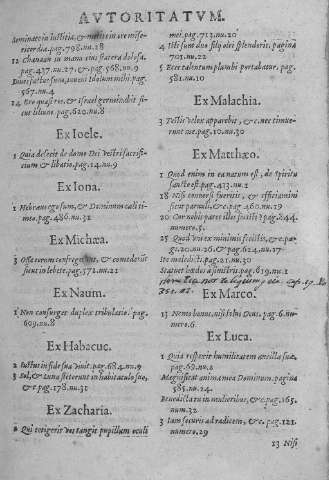 AVTORITATVM.
seminate in iustitia, & metite in ore mise-
ricordia. pag. 798. nu. 18
12 Chanaan in manu eius statera dolosa.
pag. 437. nu. 27. & pag. 568. nu. 9
Diues factus sum, inueni idolum mihi. pag.
567. nu. 4
14 Ero quasi ros, & Israel germinabit si-
cut lilium. pag. 620. nu. 8
Ex Ioele.
1 Quia deseçit de domo Dei vestri sacrifi-
cium & libatio. pag. 14. nu. 9
Ex Iona.
1 Hebraeus ego sum, & Dominum cæli ti-
meo. pag. 486. nu. 32
Ex Michæa.
3 Ossa eorum confregerunt, & comederūt
sicut in lebete. pag. 572. nu. 21
Ex Naum.
1 Non consurget duplex tribulatio. pag.
609. nu. 8
Ex Habacuc.
2 Iustus in fide sua viuit. pag. 684. nu. 9
3 Sol, & Luna steterunt in habitaculo suo,
&c. pag. 178. nu. 31
Ex Zacharia.
2 Qui tetigerit vos tangit pupillam oculi
mei. pag. 713. nu. 20
4 Isti sunt duo filij olei splendoris. pagina
703. nu. 22
5 Ecce talentum plumbi portabatur. pag.
581. nu. 10
Ex Malachia.
3 &c. nec timue-
runt me. pag. 10. nu. 30
Ex Matthæo.
1 Quod enim in ea natum est, de Spiritu
sancto est. pag. 413. nu. 2
18 Nisi conuersi fueritis, & efficiamini
sicut paruuli, &c. pag. 460. nu. 19
20 Cur nobis parce illis 844.
numero. 5
25 Quod vni ex minimis fecistis, &c. pa-
gi. 20. nu. 26. & pag. 624. nu. 27
Ite maledicti. pag. 21. nu. 30
Statuet hœdos à sinistris. pag. 619. nu. 1
Ex Marco.
13 Nemo bonus, nisi solus Deus. pag. 6. nu-
mero. 6.
Ex Luca.
1 Quia respexit humilitatem ancillæ suæ,
pag. 69. nu. 2
Magnificat anima mea Dominum. pagina
585. nu. 24.
Benedicta tu in mulieribus, &c. pag. 165.
num. 32
3 Iam securis ad radicem, &c. pag. 121.
numero. 29
13 Nisi